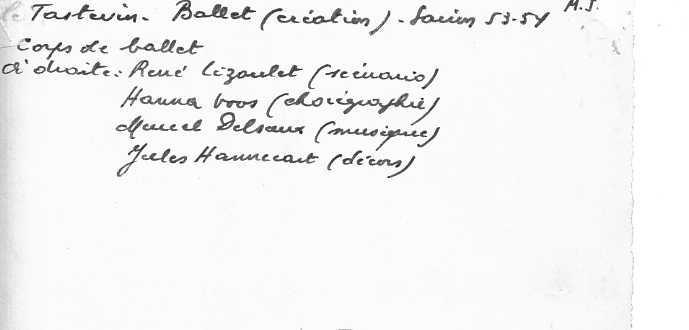 Le Tastevin - Ballet (création) - Saison 53-54 M.J.
Corps de ballet
à droite: René Lizoulet (scénario)
Hanna Voos (chorégraphie)
Marcel Delsaux (musique)
Jules Hannecart (décors)